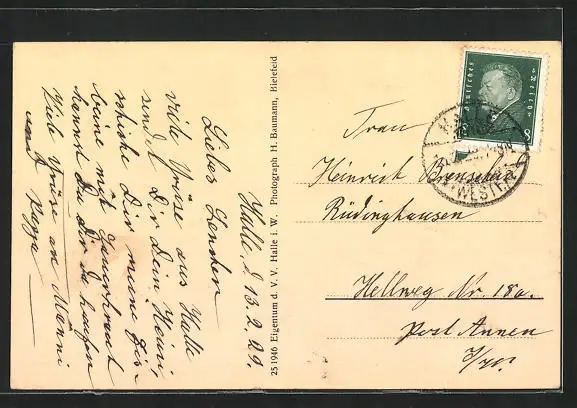 Halle, d 13. 2. 29.
Liebes Lenchen
viele Grüsse aus Halle
sendet Dir Dein Heini
schicke Dir meine Eis-
beine mit Sauerkraut
kannst Du Dir da kaufen
Viele Grüsse an Männi
und
25 1946 Eigentum d. V. V. Halle i. W. Photograph H. Baumann, Bielefeld
Deutsches Reich
8
(WESTF.)
Frau
Heinrich
Rüdinghausen
Hellweg Nr. 18a.
Post Annen